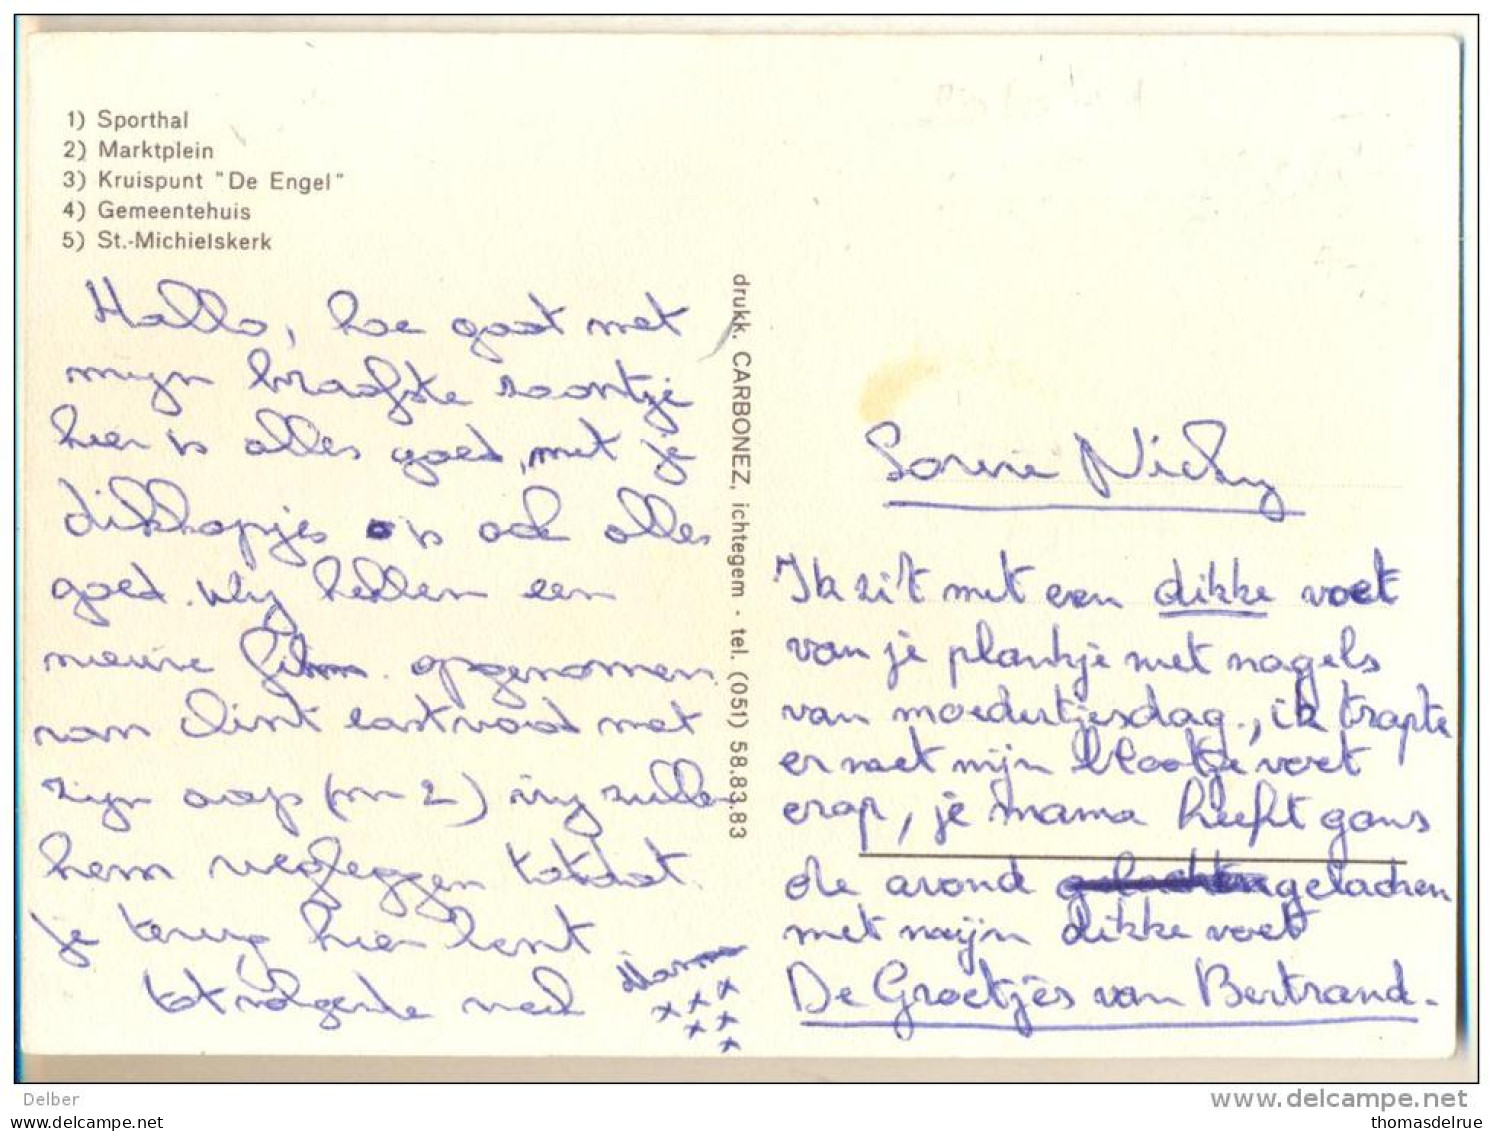 1) Sporthal
2) Marktplein
3) Kruispunt "De Engel"
4) Gemeentehuis
5) St.-Michielskerk
Hallo, hoe gaat met
mijn braafste zoontje
hier is alles goed, met je
dikkopjes is ook alles
goed. Wij hebben een
nieuwe film opgenomen
van Clint eastwood met
zijn aap (nr 2) wij zullen
hem weg leggen totdat
je terug hier bent
tot volgende week
Mama
x x x
x x
x
drukk. CARBONEZ, ichtegem - tel. (051) 58.83.83
Nicky
Ik zit met een dikke voet
van je plankje met nagels
van moedertjesdag., ik trapte
er met mijn blootje voet
erop, je mama heeft gans
de avond gelachen
met mijn dikke voet
De Groetjes van Bertrand.
Delber
www.delcampe.net
All rights reserved
thomasdelrue